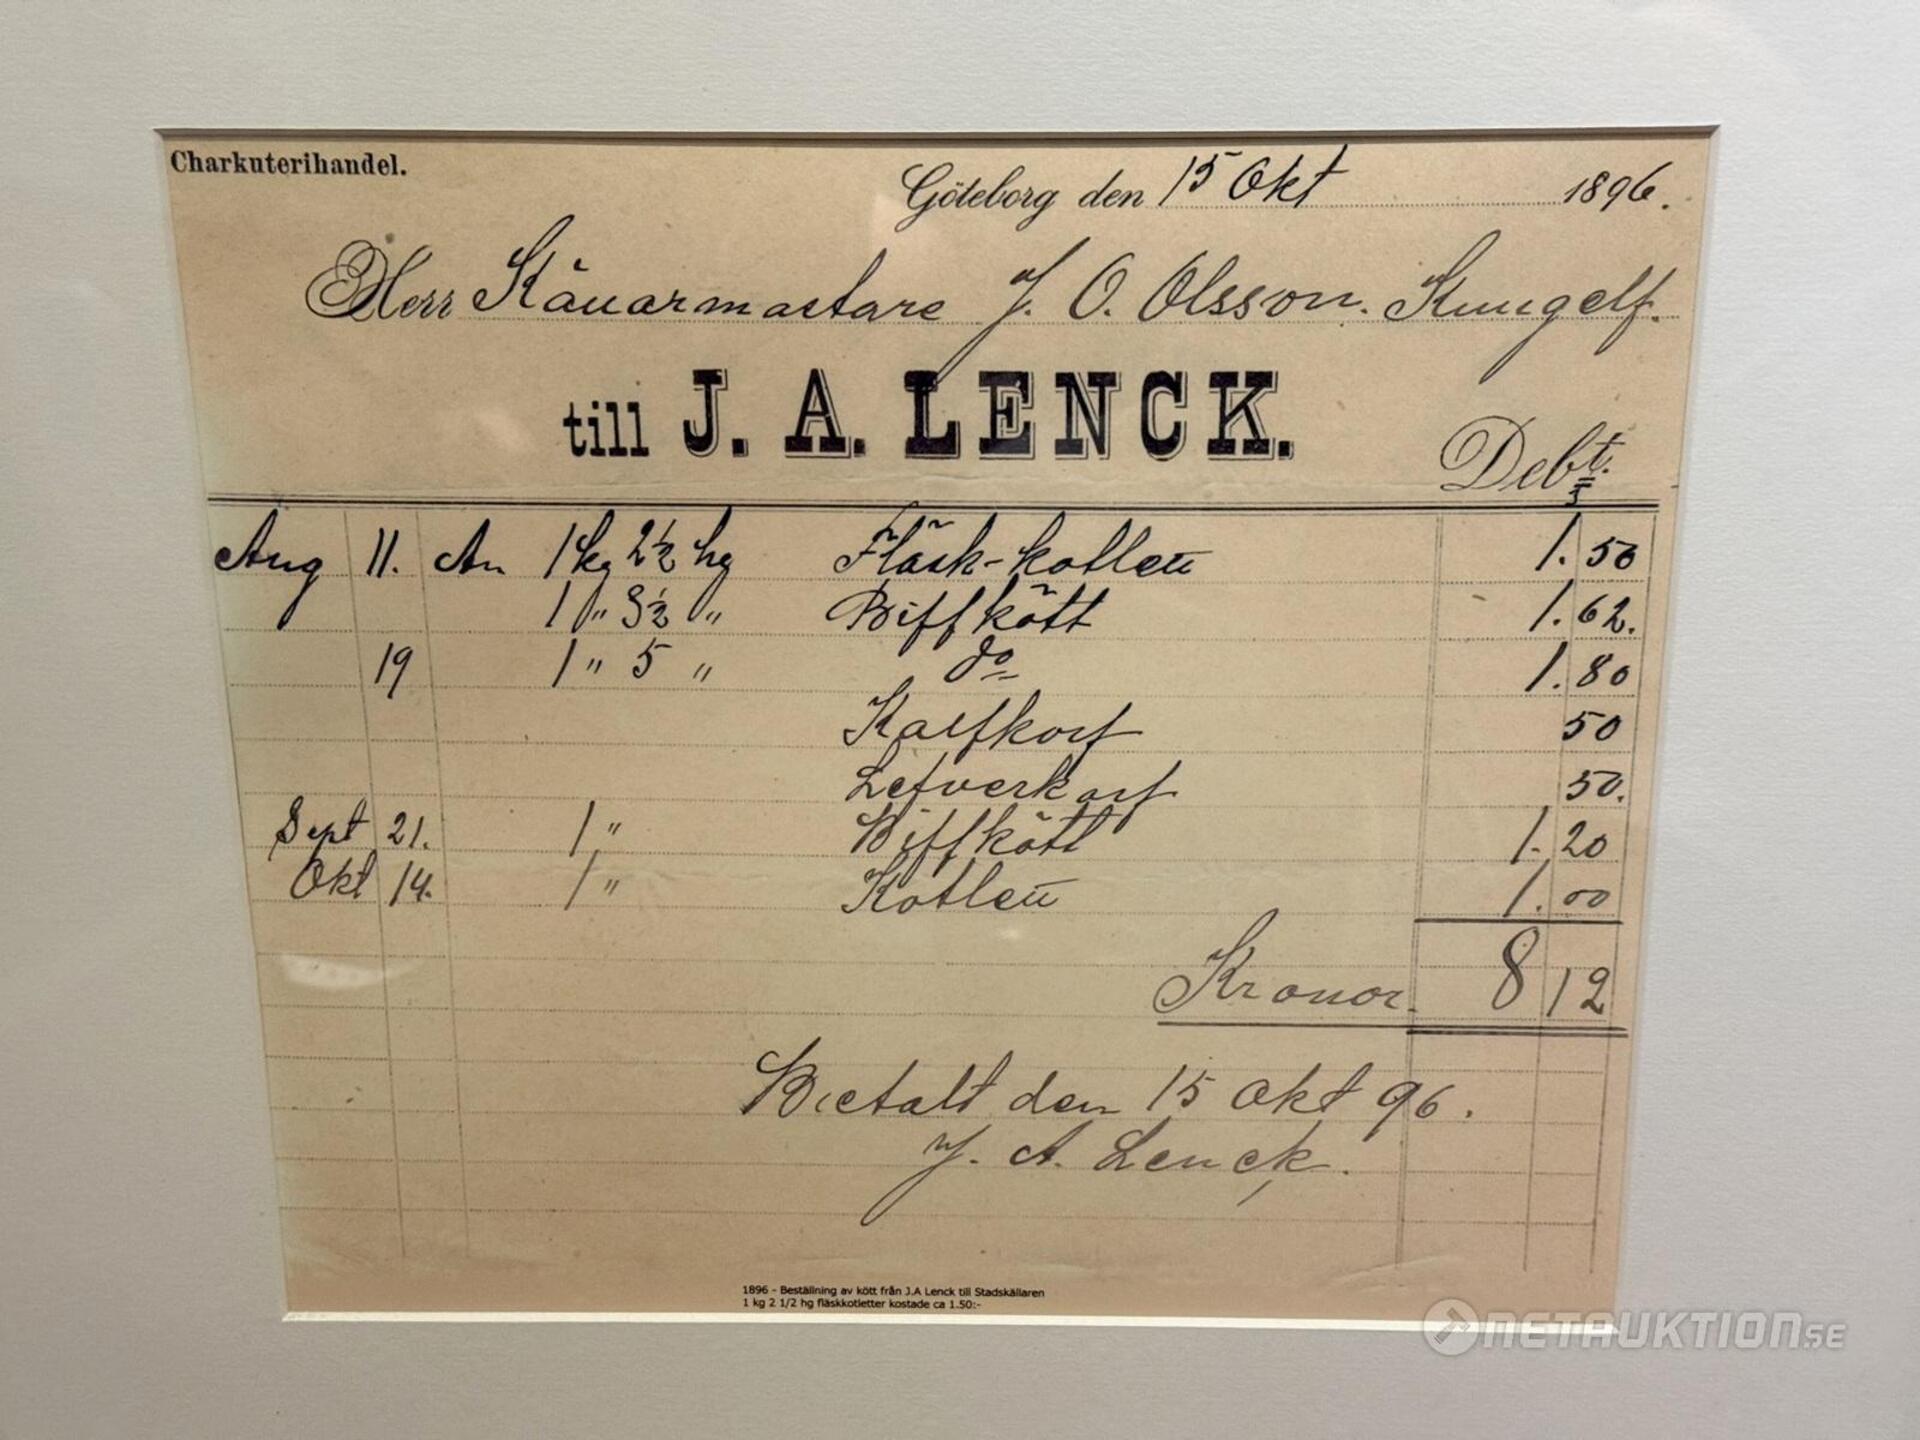 Charkuterihandel.
Göteborg den 15 Okt 1896.
Herr Källarmästare J. O. Olsson. Kungelf.
till J. A. LENCK.
Debt.
Aug 11. An 1 kg 2 1/2 hg Fläsk-kotlett 1.50
1 " 3 1/2 " Biffkött 1.62.
19 1 " 5 " do 1.80
Kalfkorf 50
Lefverkorf 50.
Sept 21. 1 " Biffkött 1.20
Okt 14. 1 " Kotlett 1.00
Kronor 8 12
Betalt den 15 Okt 96.
J. A. Lenck.
1896 - Beställning av kött från J.A Lenck till Stadskällaren
1 kg 2 1/2 hg fläskkotletter kostade ca 1.50:-
NETAUKTION.SE